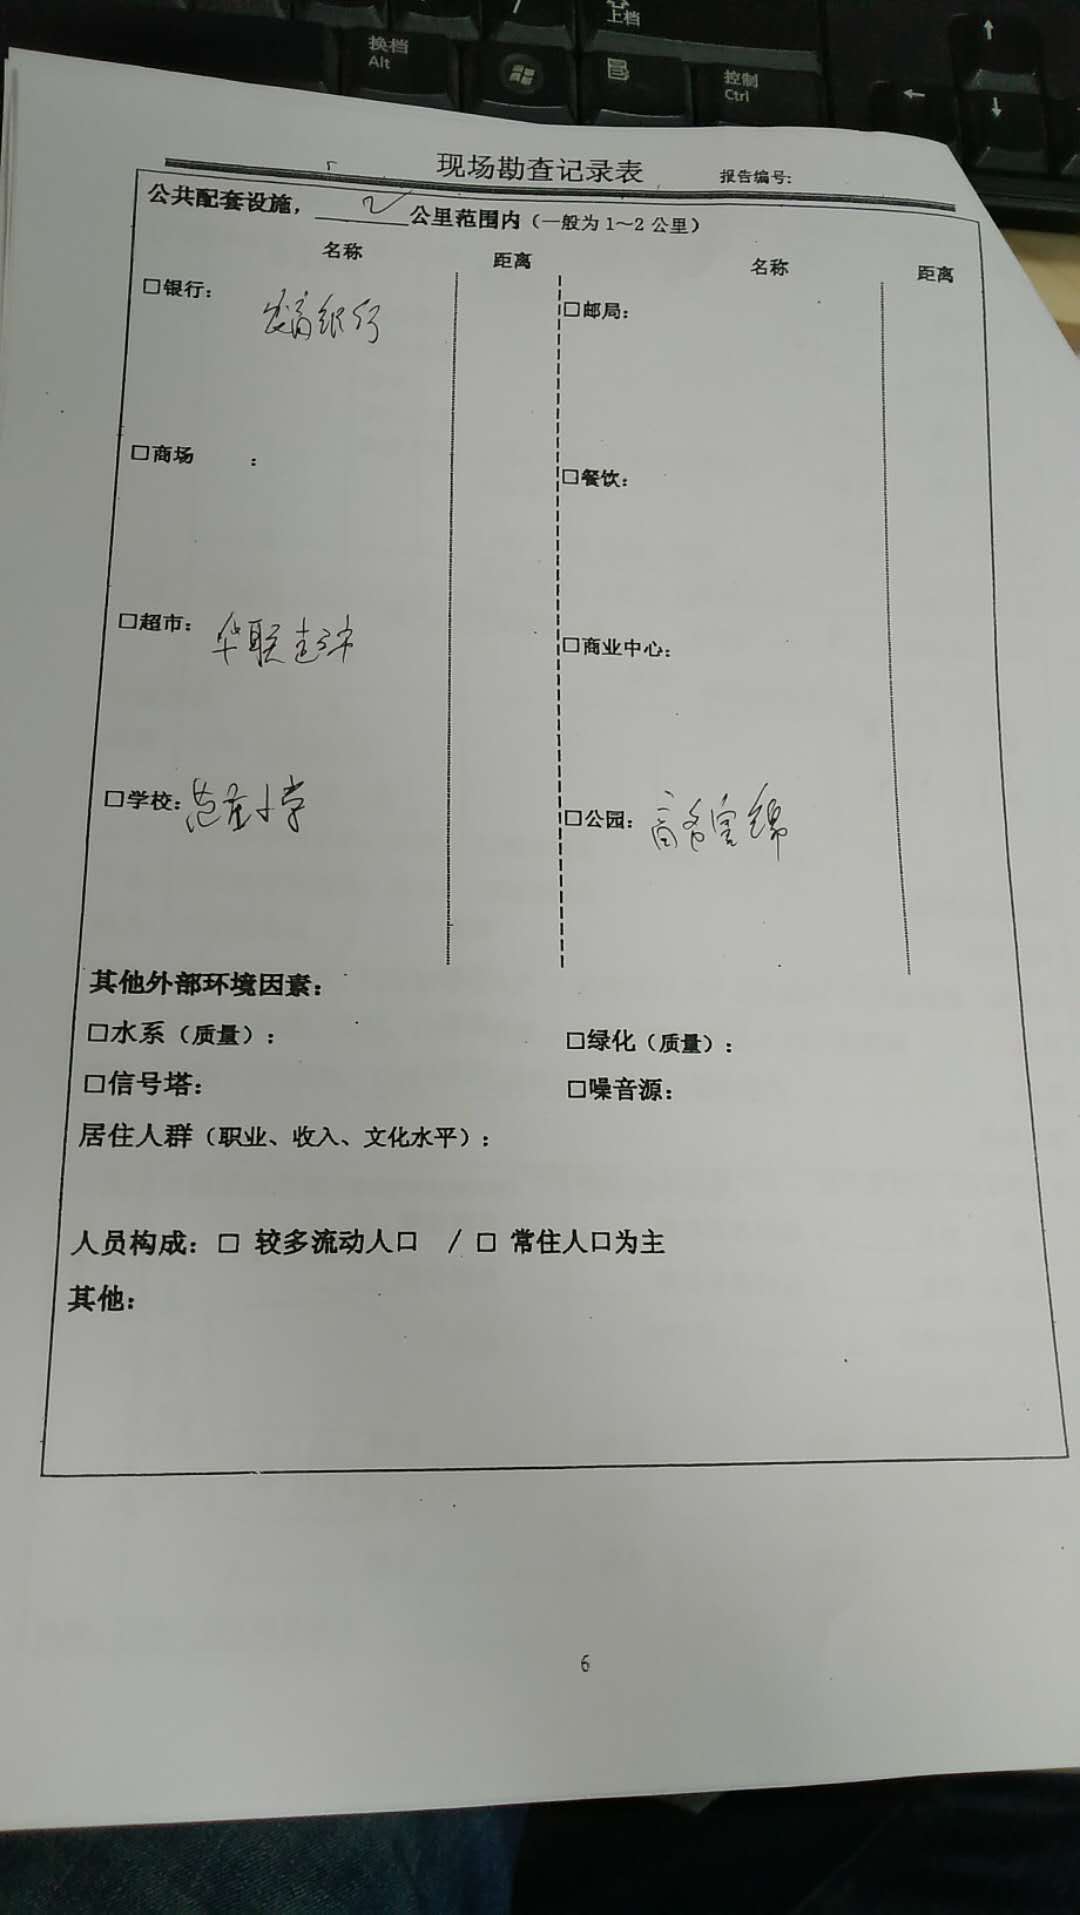 上档
换档
Alt
控制
Ctrl
现场勘查记录表
报告编号:
公共配套设施, 2 公里范围内(一般为1~2公里)
名称 距离 名称 距离
□银行: 银行
□邮局:
□商场 :
□餐饮:
□超市: 华联超市
□商业中心:
□学校: 范庄小学
□公园:
其他外部环境因素:
□水系(质量):
□绿化(质量):
□信号塔:
□噪音源:
居住人群(职业、收入、文化水平):
人员构成: □ 较多流动人口 / □ 常住人口为主
其他:
6